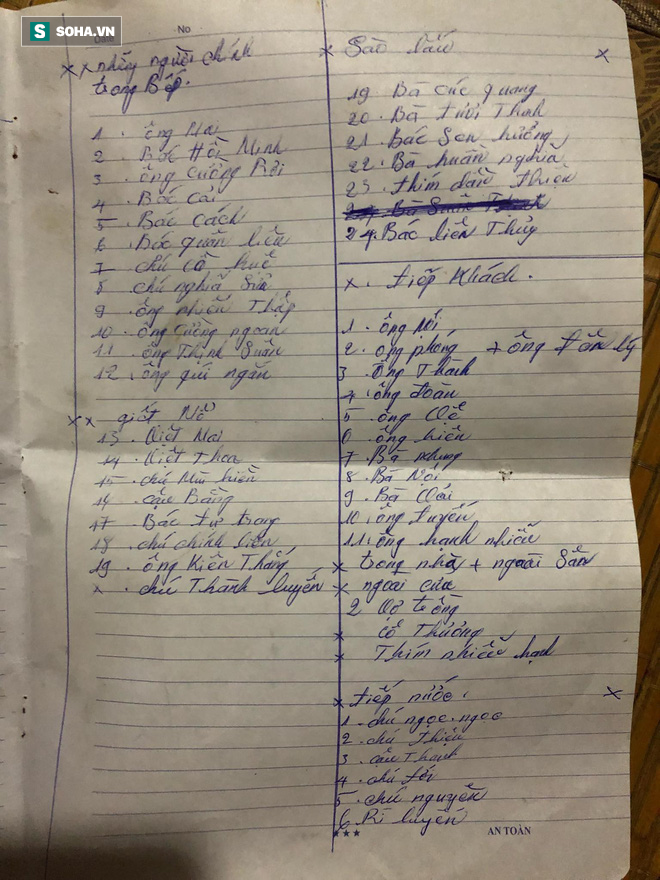 S SOHA.VN
No
Date
x x những người chính
trong Bếp.
1 . ông Mai
2 Bác Hồi Minh
3 . ông cường Rơi
4 . Bác cài
5 . Bác cách
6 . Bác quân liễu
7 chú cồ huế
8 chú nghĩa sửu
9 . ông nhiên Thắp
10 . ông cường ngoan
11 . ông Thịnh Suân
12 . ông quí ngân
x x giết Mổ
13 . Việt Mai
14 . Việt Thoa
15 . chú Mùi hiền
16 . cậu Bằng
17 Bác tự trang
18 . chú chính liên
19 . ông Kiên Thắng
x . chú Thành luyến
x Sào lấu x
19 Bà cúc quang
20 . Bà tươi Thịnh
21 . Bác Sen hưởng
22 . Bà huần nghĩa
23 . thím dần thiện
24. Bác liên Thủy
x . tiếp Khách .
1 . ông Nơi
2 . ông phóng + ông
3 . ông Thanh
4 . ông đoàn
5 . ông
6 . ông hiền
7 . Bà nhung
8 . Bà Nơi
9 . Bà
10 . ông tuyến
11 . ông hạnh nhiễu
x trong nhà + ngoài Sân
x ngoài cửa
2
x cô Thưởng
x Thím nhiễu hạnh
x tiếp nước . x
1 . chú ngọc . ngọc
2 . chú thiệu
3 . cậu Thanh
4 . chú tới
5 . chú nguyễn
6 Rì luyến
★★★ AN TOÀN